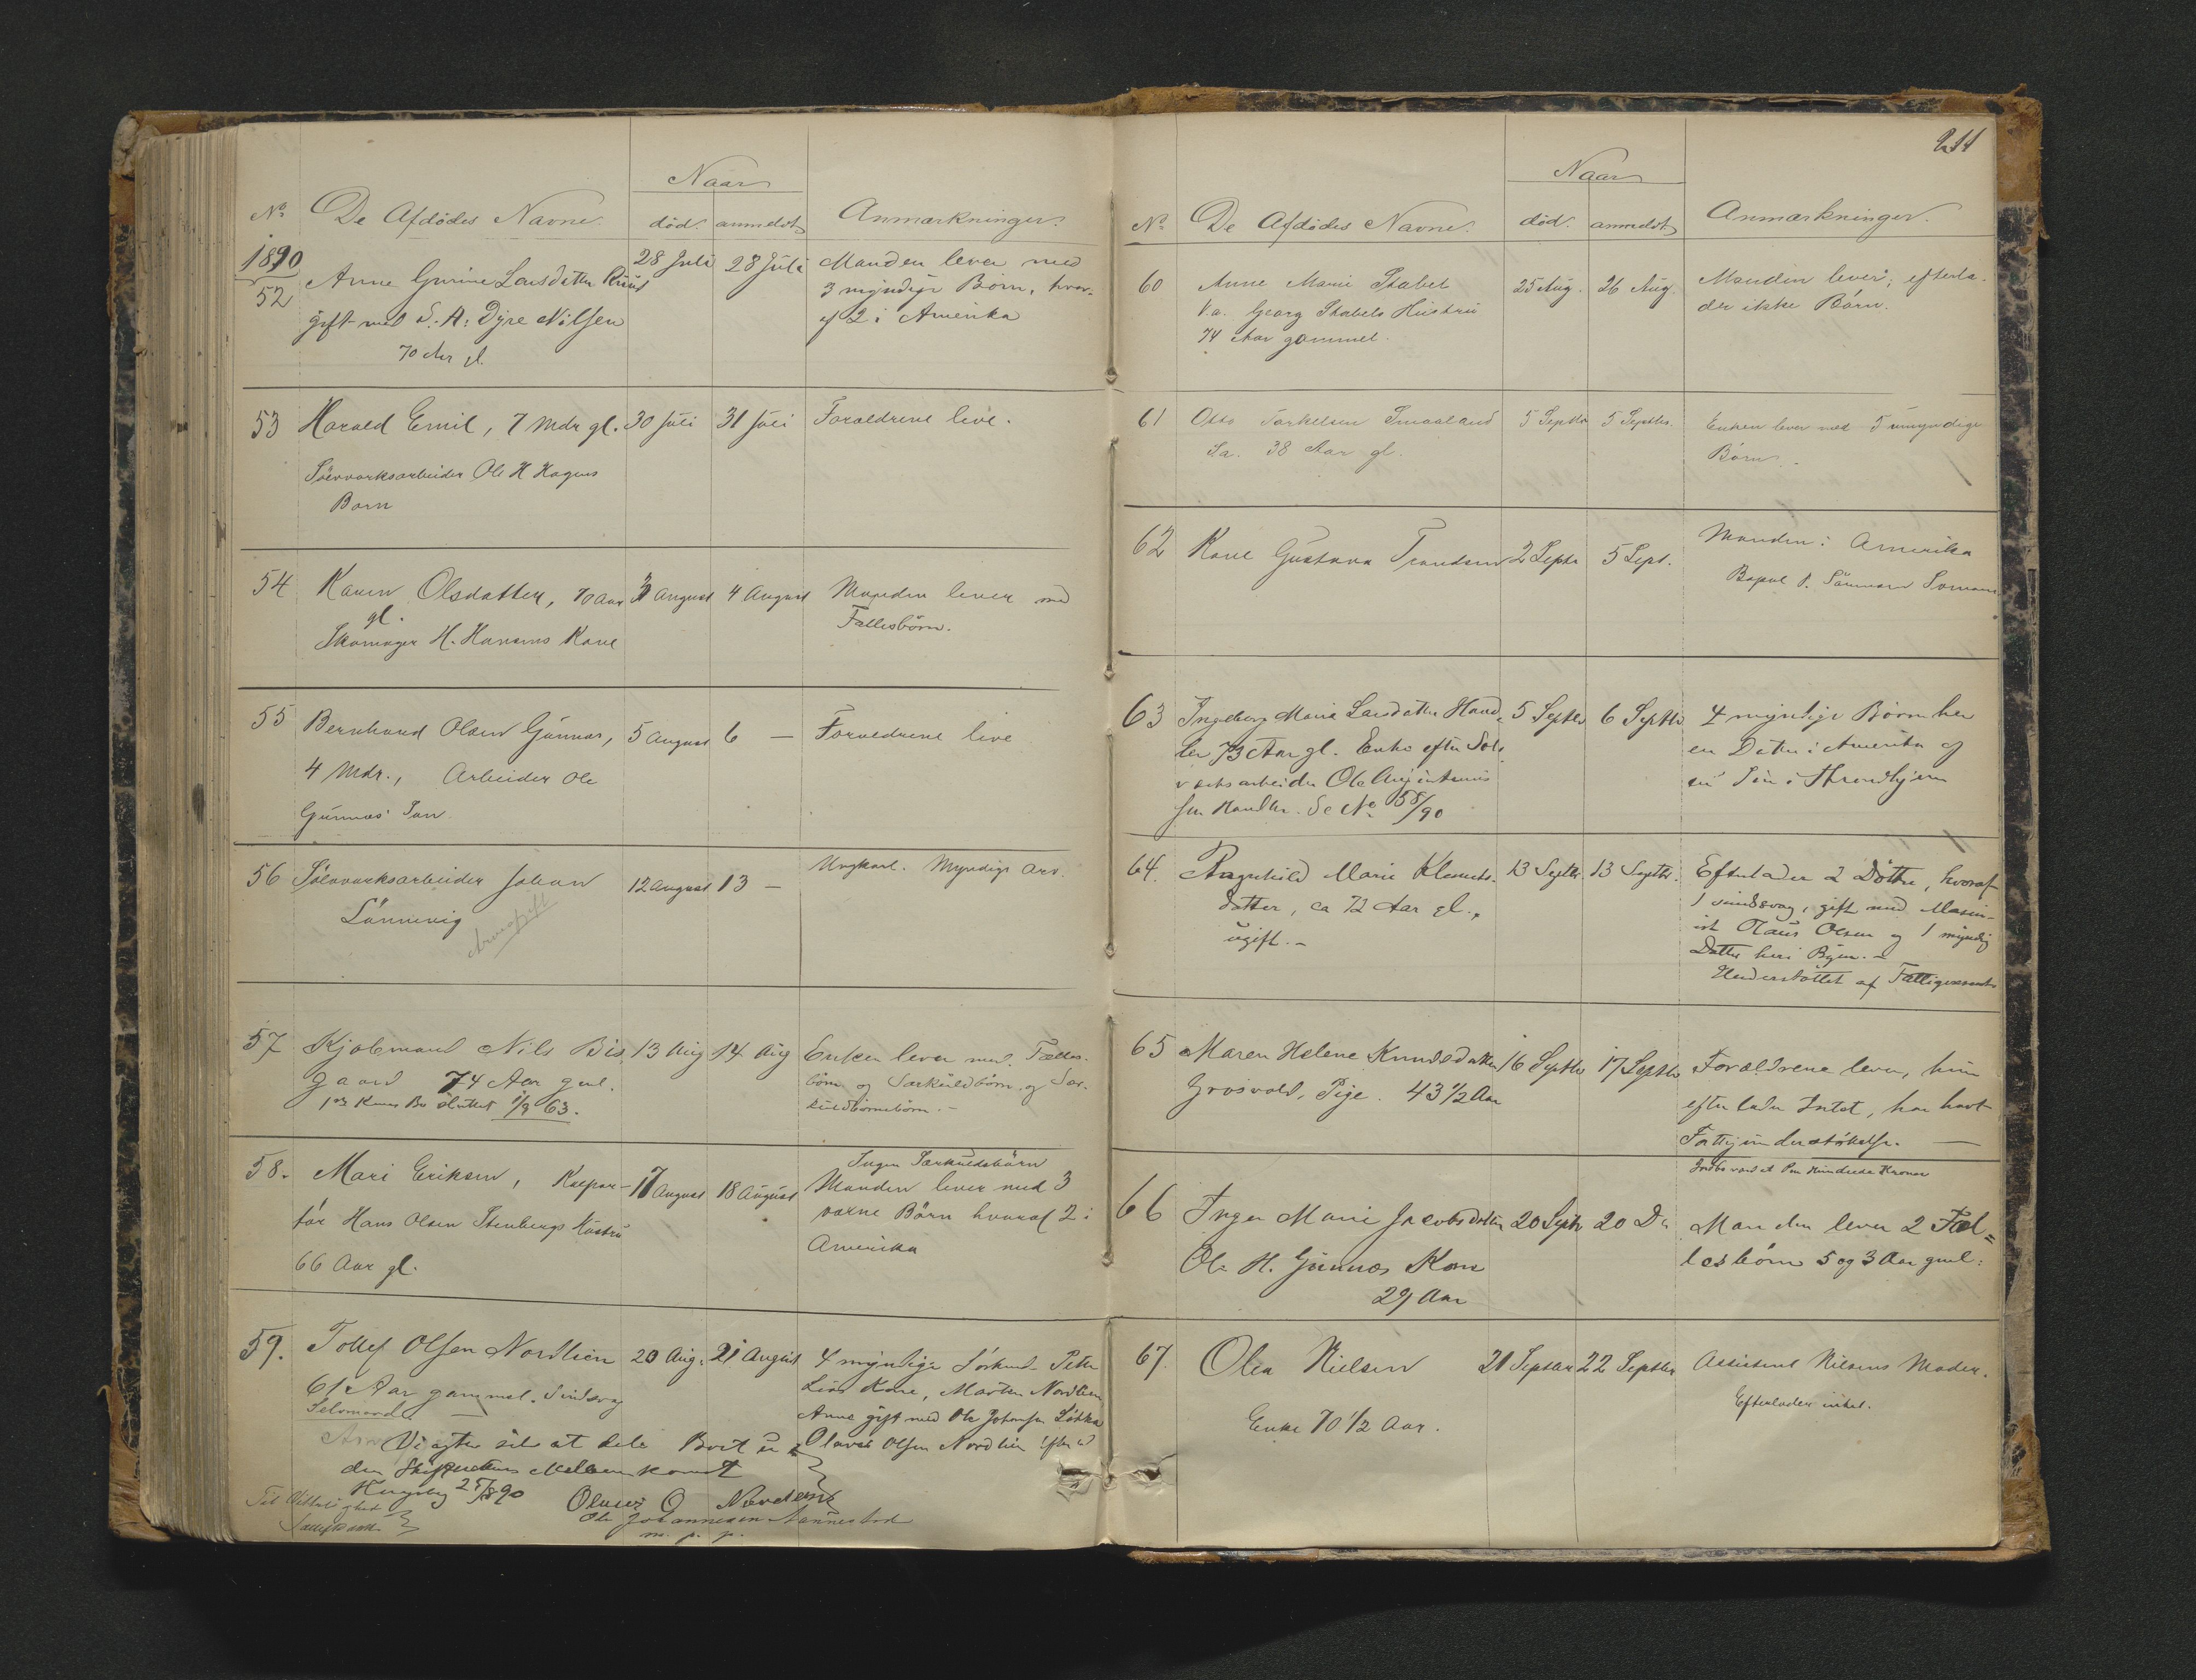 Naar
No De Afdødes Navne. død. anmeldt Anmærkninger.
1890
52 Anne Gurine Larsdatter Ruud 28 Juli 28 Juli Manden lever med
gift med L. A. Dyre Nilsen 3 myndige Børn, hvor-
70 Aar gl. af 2 i Amerika
53 Harald Emil, 7 Mdr gl. 30 Juli 31 Juli Forældrene live.
Sølvværksarbeider Ole H Hagens
Barn
54 Karen Olsdatter, 70 Aar 3 August 4 August Manden lever med
gl. Fællesbörn.
Skomager H. Hansens Kone
55 Bernhard Olsen Gunnæs, 5 August 6 — Forældrene live
4 Mdr., Arbeider Ole
Gunnæs' Søn
56 Sölvværksarbeider Johan 12 August 13 — Ungkarl. Myndige Arv.
Lünnevig
Arveafgift
57 Kjøbmand Nils Bis- 13 Aug 14 Aug Enken lever med Fælles-
gaard 74 Aar gml. börn og Særkuldbörn og Sær-
1ste Kones Bo sluttet 1/9 63. kuldbörnebörn. —
Ingen Særkuldsbörn
58. Mari Eriksen, 17 August 18 August Manden lever med 3
Hans Olsen Stenbergs Hustru voxne Börn hvoraf 2 i
66 Aar gl. Amerika
59. Tollef Olsen Nordlien 20 Aug. 21 August 4 myndige Peter
61 Aar gammel. Sindssvag Lies Kone, Marthe Nordlien
Selvmord Anne gift med Ole Johansen Løkka
Vi agter selv at dele Boet Olaves Olsen Nordlien
den Skifterettens Mellemkomst
Kongsberg 27/8 90 Olaves O Nordlien
Til Vitterlighed Ole Johannesen Nannestad
m. p. p.
211
Naar
No De Afdødes Navne. død. anmeldt Anmærkninger.
60 Anne Marie Stabel 25 Aug. 26 Aug. Manden lever; efterla-
V.a. Georg Stabels Hustru der ikke Børn.
74 Aar gammel.
61 Otto Torkelsen Smaaland 5 Septbr 5 Septbr. Enken lever med 5 umyndige
Sa. 38 Aar gl. Børn. -
62 Kone Gustava Trondsen 2 Septr 5 Sept. Manden i Amerika
63 Ingeborg Marie Larsdatter Hand- 5 Septbr 6 Septbr 4 myndige Børn her
ler 73 Aar gl. Enke efter Søl- en Datter i Amerika og
værksarbeider Ole en Søn i Throndhjem
sen Handler. Se No 58/90
64. Ragnhild Marie Klemets- 13 Septbr. 13 Septbr. Efterlader 2 Døttre, hvoraf
datter, ca 72 Aar gl., 1 sindssvag, gift med Masin-
ugift. - ist Olaus Olsen og 1 myndig
Datter her i Byen. -
Understøttet af Fattigvæsenet
65 Maren Helene Knudsdatter 16 Septbr 17 Septbr Forældrene lever, hun
Grosvold, Pige. 43 1/2 Aar efterlader Intet, har havt
Fattigunderstøttelse. —
Kroner
66 Inger Marie Jacobsdatter 20 Septr 20 Do Manden lever 2 Fæl-
Ole H. Gunnæs Kone lesbörn 5 og 3 Aar gml.
29 Aar
67. Olea Nielsen 21 Septbr 22 Septbr Assistent Nilsens Moder.
Enke 70 1/2 Aar. Efterlader intet.